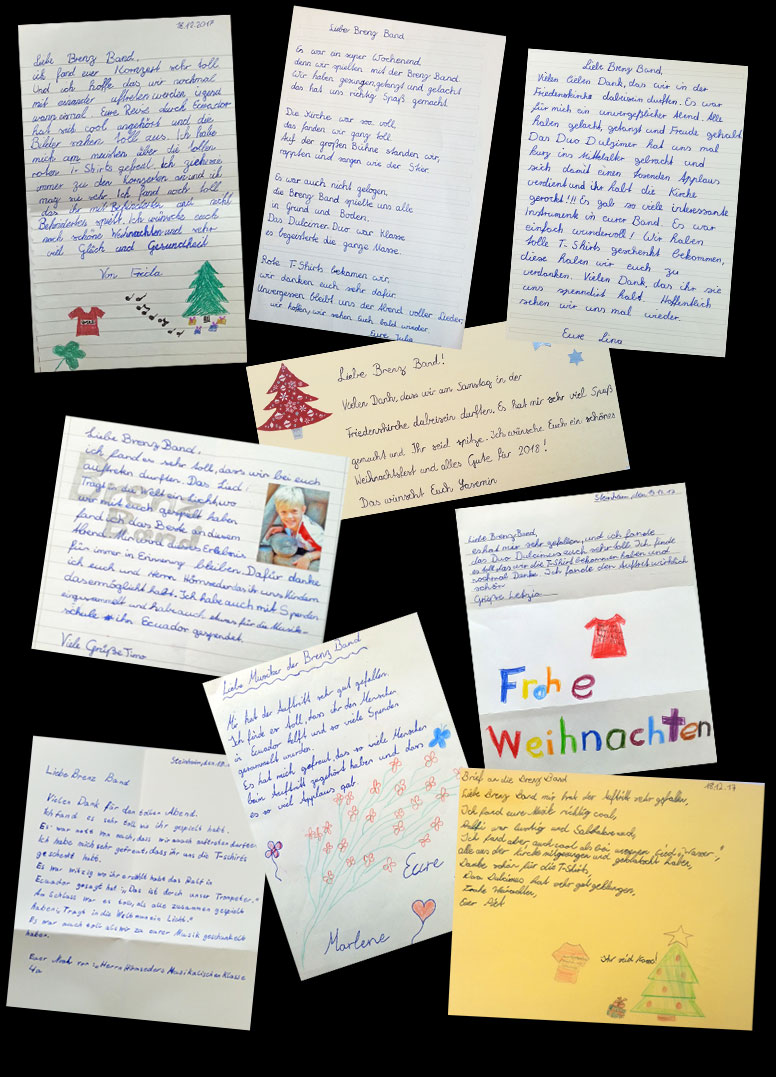 18.12.2017
Liebe Brenz Band,
ich fand euer Konzert sehr toll
Und ich hoffe das wir nochmal
mit einander auftreten werden irgend
wann einmal. Eure Reise durch Ecuador
hat sich cool angehört und die
Bilder sahen toll aus. Ich habe
mich am meisten über die tollen
roten T-Shirts gefreut. Ich
immer zu den Konzerten
mag sie sehr. Ich fand noch toll
das ihr mit Behinderten und nicht
Behinderten spielt. Ich wünsche euch
noch schöne Weihnachten und sehr
viel Glück und Gesundheit
Von Frida
Liebe Brenz Band
Es war ein super Wochenend
denn wir spielten mit der Brenz Band.
Wir haben gesungen, getanzt und gelacht
das hat uns richtig Spaß gemacht.
Die Kirche war so voll,
das fanden wir ganz toll.
Auf der großen Bühne standen wir,
rappten und sangen wie der Stier.
Es war auch nicht gelogen,
die Brenz Band spielte uns alle
in Grund und Boden.
Das Dulcimer Duo war Klasse
es begeisterte die ganze Masse.
Rote T-Shirts bekamen wir,
wir danken euch sehr dafür.
Unvergessen bleibt uns der Abend voller Lieder,
wir hoffen, wir sehen Euch bald wieder.
Eure Julia
Liebe Brenz Band,
Vielen lieben Dank, das wir in der
Friedenskirche dabeisein durften. Es war
für mich ein unvergeßlicher Abend. Alle
haben gelacht, getanzt und Freude gehabt.
Das Duo Dulzimer hat uns mal
kurz ins Mittelalter gebracht und
sich damit einen tosenden Applaus
verdient und ihr habt die Kirche
gerockt!!! Es gab so viele interessante
Instrumente in eurer Band. Es war
einfach wundervoll! Wir haben
tolle T-Shirts geschenkt bekommen,
diese haben wir euch zu
verdanken. Vielen Dank, das ihr sie
uns spendiert habt. Hoffentlich
sehen wir uns mal wieder.
Eure Lina
Liebe Brenz Band!
Vielen Dank, dass wir am Samstag in der
Friedenskirche dabeisein durften. Es hat mir sehr viel Spaß
gemacht und Ihr seid spitze. Ich wünsche Euch ein schönes
Weihnachtsfest und alles Gute für 2018!
Das wünscht Euch Yasemin
Brenz Band
Liebe Brenz Band,
ich fand es sehr toll, dass wir bei euch
auftreten durften. Das Lied:
Tragt in die Welt ein Licht, wo
wir mit euch gespielt haben
fand ich das Beste an diesem
Abend. Mir wird dieses Erlebnis
für immer in Erinnerung bleiben. Dafür danke
ich euch und Herrn Hömseder das ihr uns Kindern
das ermöglicht habt. Ich habe auch mit Spenden
eingesammelt und habe auch etwas für die Musik-
schule in Ecuador gespendet.
Viele Grüße Timo
Steinheim, den 19.12.17
Liebe Brenz Band,
es hat mir sehr gefallen, und ich fande
das Duo Dulcimus auch sehr toll. Ich finde
es toll, das wir die T-Shirt bekommen haben und
nochmal Danke. Ich fande den Auftritt wirklich
schön
Grüße Letizia
Frohe
Weihnachten
Liebe Musiker der Brenz Band
Mir hat der Auftritt sehr gut gefallen.
Ich finde es toll, dass ihr den Menschen
in Ecuador helft und so viele Spenden
gesammelt wurden.
Es hat mich gefreut, das so viele Menschen
beim Auftritt zugehört haben und dass
es so viel Applaus gab.
Eure
Marlene
Steinheim, den 18.
Liebe Brenz Band
Vielen Dank für den tollen Abend.
Ich fand es sehr toll wie ihr gespielt habt.
Es war nett von euch, dass wir auch auftreten durften.
Ich habe mich sehr gefreut, dass ihr uns die T-shirts
geschenkt habt.
Es war witzig wo ihr erzählt habt das Ralf in
Ecuador gesagt hat "Das ist doch unser Trompeter."
Am Schluss war es toll, als alle zusammen gespielt
haben "Tragt in die Welt nun ein Licht."
Es war auch toll als wir zu eurer Musik geschunkelt
haben.
Euer von Herrn Hömseders Musikalischen Klasse
4a
Brief an die Brenz Band
18.12.17
Liebe Brenz Band mir hat der Auftritt sehr gefallen,
Ich fand eure Musik richtig cool,
war lustig und
Ich fand aber auch cool als bei unserem Lied "Wasser",
alle aus der Kirche mitgesungen und geklatscht haben,
Danke schön für die T-Shirts,
Duo Dulcimus hat sehr gut geklungen,
Frohe Weihnachten,
Euer
Ihr seid Klasse!